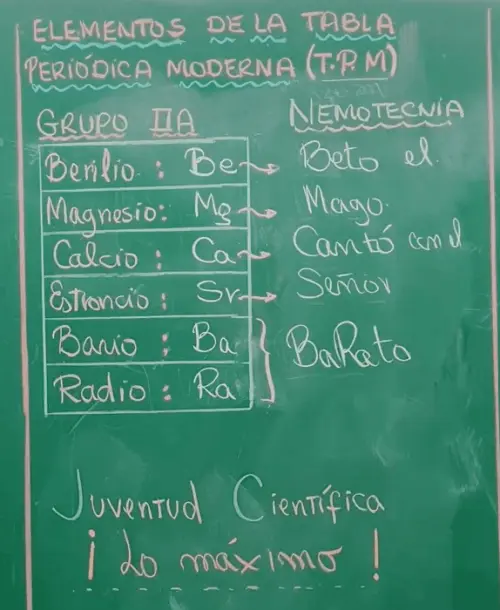 ELEMENTOS DE LA TABLA
PERIÓDICA MODERNA (T.P.M)
GRUPO IIA
NEMOTECNIA
Berilio : Be → Beto el
Magnesio: Mg → Mago
Calcio : Ca → Cantó con el
Estroncio : Sr → Señor
Bario : Ba
Radio : Ra
BaRato
Juventud Científica
¡Lo máximo!